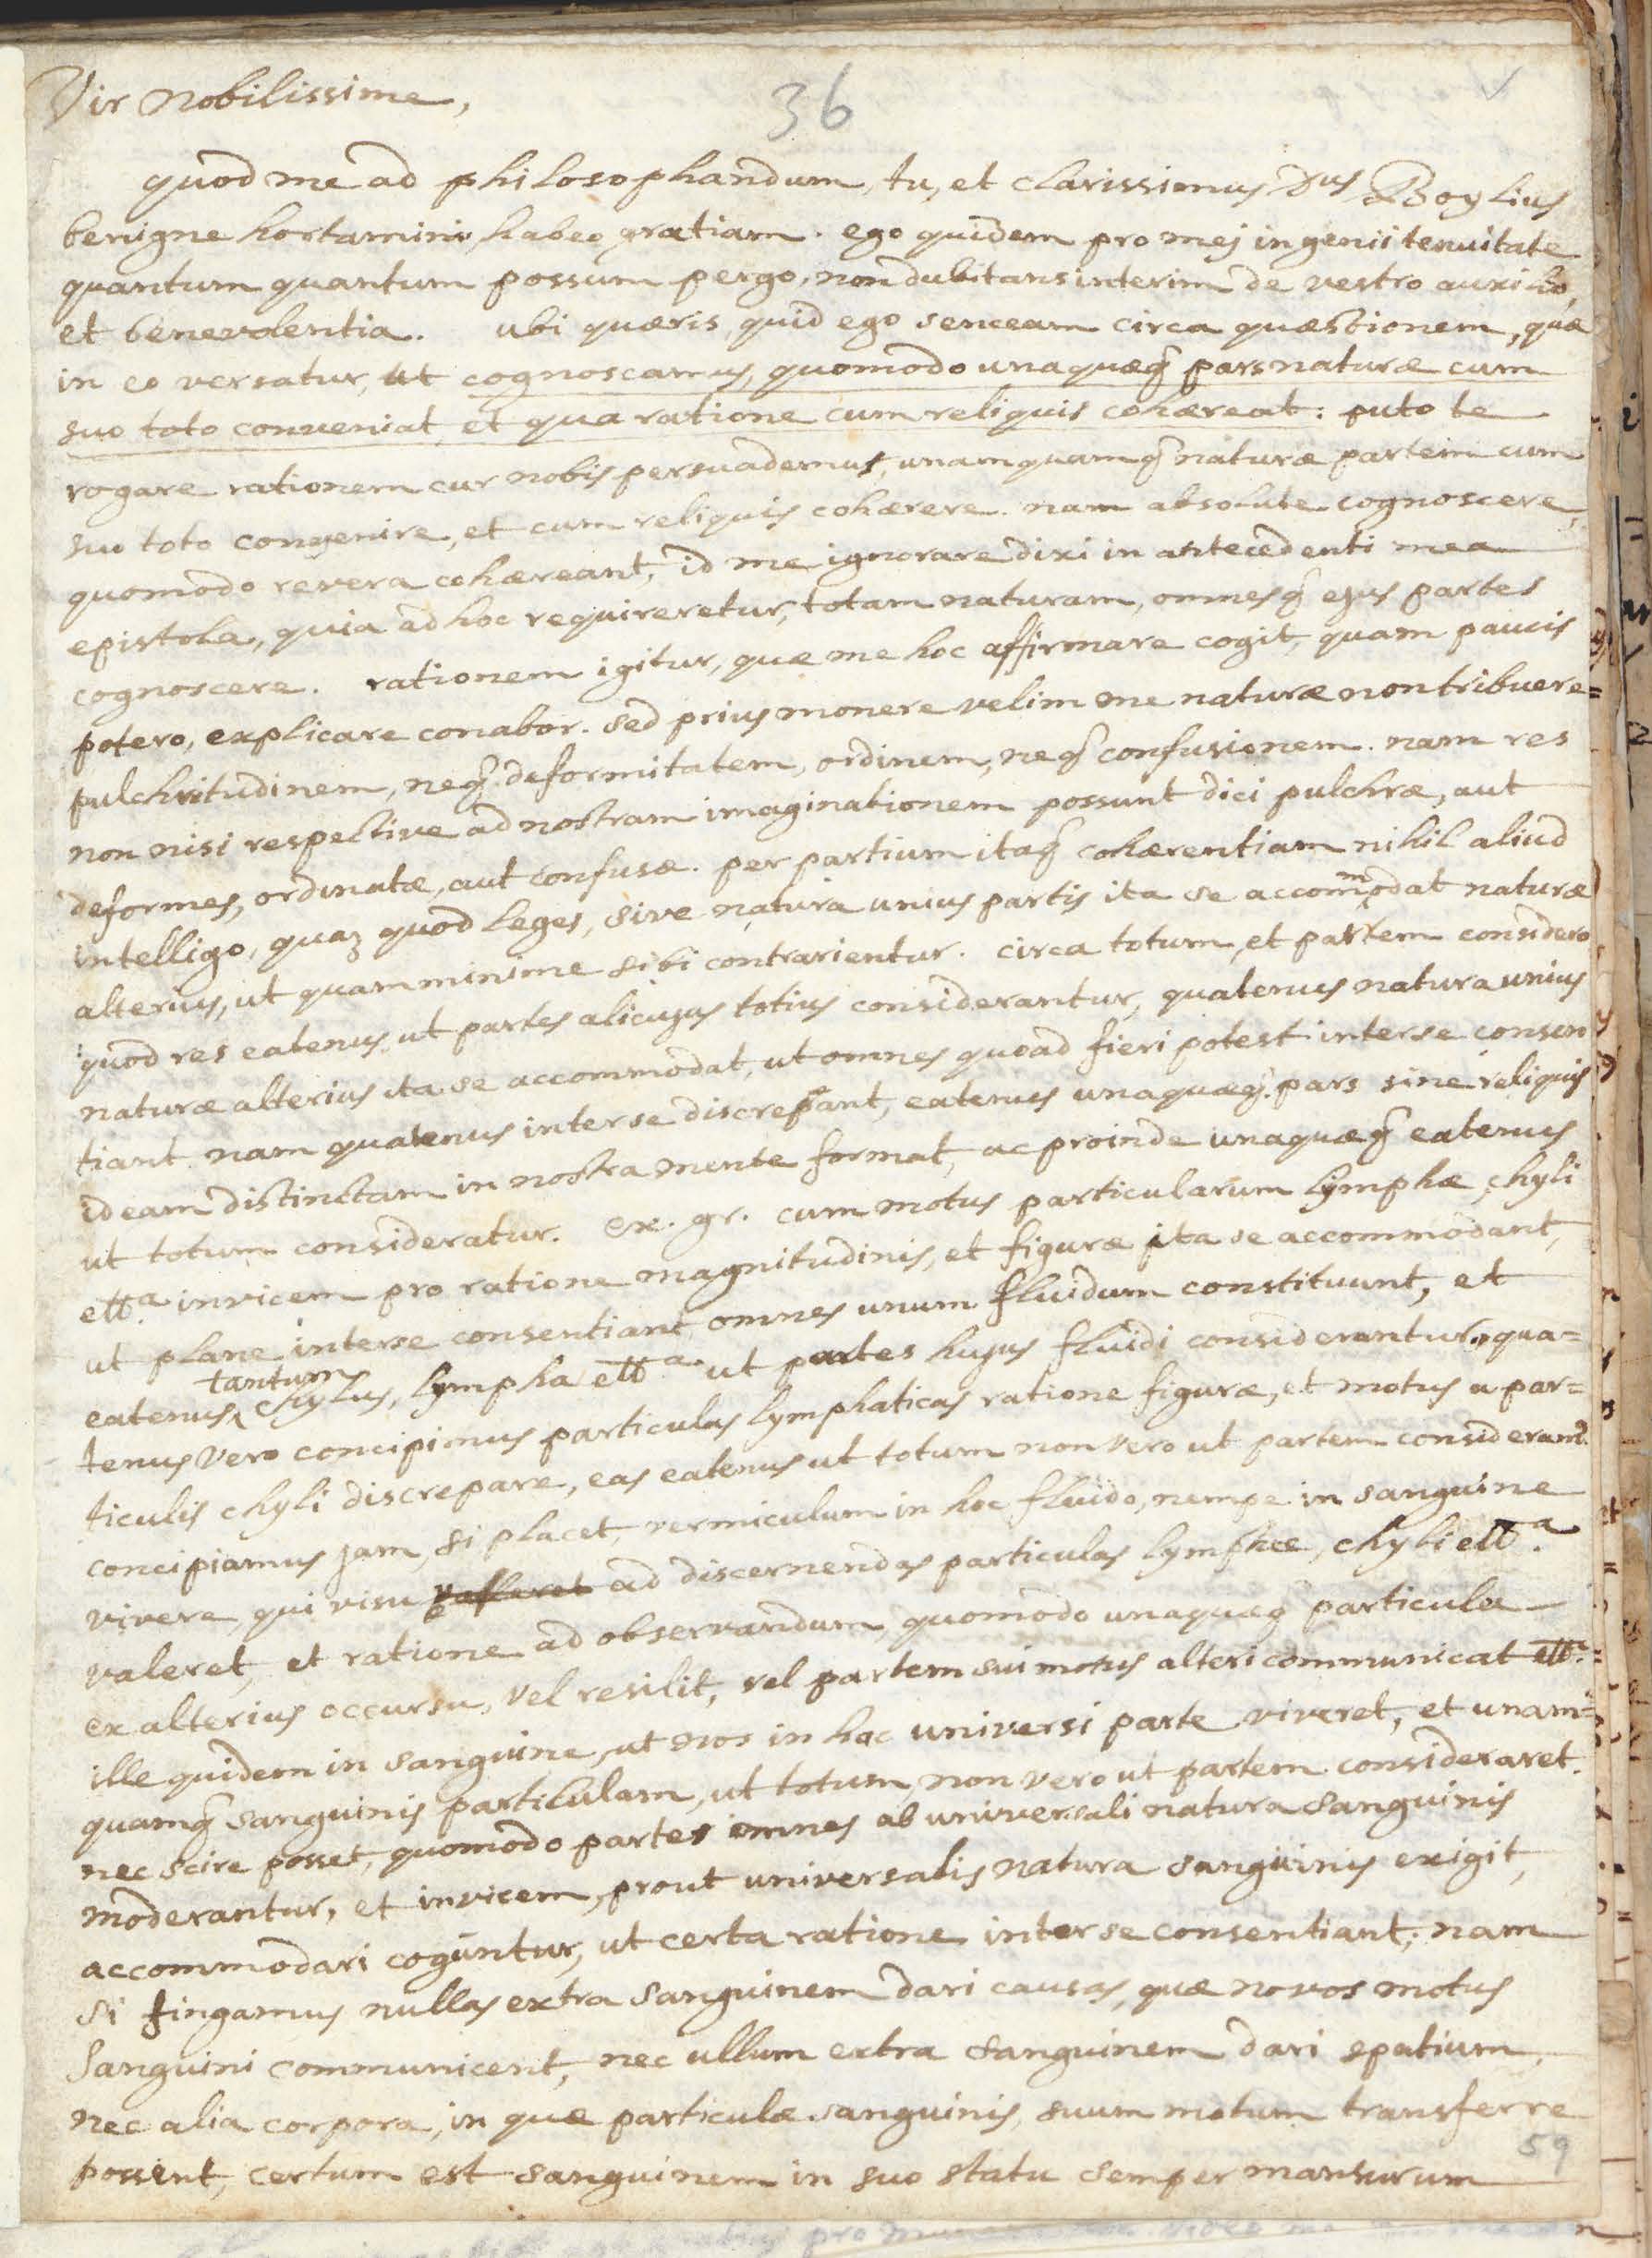 36
Vir Nobilissime,
quod me ad philosophandum, tu, et clarissimus Dus Boylius
benigne hortamini, habeo gratiam. ego quidem pro mej ingenii tenuitate
quantum quantum possum pergo, non dubitans interim de vestro auxilio,
et benevolentia. ubi quæris quid ego senceam circa quæstionem, quæ
in eo versatur, ut cognoscamus, quomodo unaquæq pars naturæ cum
suo toto conveniat et qua ratione cum reliquis cohæreat: puto te
rogare rationem cur nobis persuademus, unamquamq naturæ partem cum
suo toto convenire, et cum reliquis cohærere. nam absolute cognoscere,
quomodo revera cohæreant, id me ignorare dixi in antecedenti mea
epistola, quia ad hoc requireretur, totam naturam, omnesq ejus partes
cognoscere. rationem igitur, quæ me hoc affirmare cogit, quam paucis
potero, explicare conabor. sed prius monere velim me naturæ non tribuere=
pulchritudinem, neq deformitatem, ordinem, neq confusionem. nam res
non nisi respective ad nostram imaginationem possunt dici pulchræ, aut
deformes, ordinatæ, aut confusæ. per partium itaq cohærentiam nihil aliud
intelligo, quaz quod leges, sive natura unius partis ita se accommodat naturæ
alterius, ut quam minime sibi contrarientur. circa totum, et partem considero
quod res eatenus ut partes alicujus totius considerantur, quatenus natura unius
naturæ alterius ita se accommodat, ut omnes quoad fieri potest inter se consen
tiant. nam quatenus inter se discrepant, eatenus unaquæq. pars sine reliquis
ideam distinctam in nostra mente format, ac proinde unaquæq eatenus
ut totum consideratur. ex. gr. cum motus particularum lymphæ, chyli
etta. invicem pro ratione magnitudinis, et figuræ ita se accommodant,
ut plane inter se consentiant omnes unum fluidum constituunt, et
eatenus tantum chylus, lympha etta. ut partes hujus fluidi considerantur, qua=
tenus vero concipimus particulas lymphaticas ratione figuræ, et motus a par=
ticulis chyli discrepare, eas eatenus ut totum non vero ut partem considerant.
concipiamus jam, si placet, vermiculum in hoc fluido, nempe in sanguine
vivere, qui visu ad discernendas particulas lymphæ, chyli etta.
valeret, et ratione ad observandum, quomodo unaquæq particula
ex alterius occursu, vel resilit, vel partem sui motus alteri communicat etta.
ille quidem in sanguine, ut nos in hac universi parte viveret, et unam=
quamq sanguinis particulam, ut totum, non vero ut partem consideraret.
nec scire posset, quomodo partes omnes ab universali natura sanguinis
moderantur, et invicem, prout universalis natura sanguinis exigit,
accommodari coguntur, ut certa ratione inter se consentiant, nam
si fingamus nullas extra sanguinem dari causas, quæ novos motus
sanguini communicent, nec ullum extra sanguinem dari spatium,
nec alia corpora, in quæ particulæ sanguinis suum motum transferre
possint, certum est sanguinem in suo statu semper mansurum
59